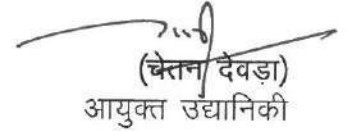 (चेतन देवड़ा)
आयुक्त उद्यानिकी